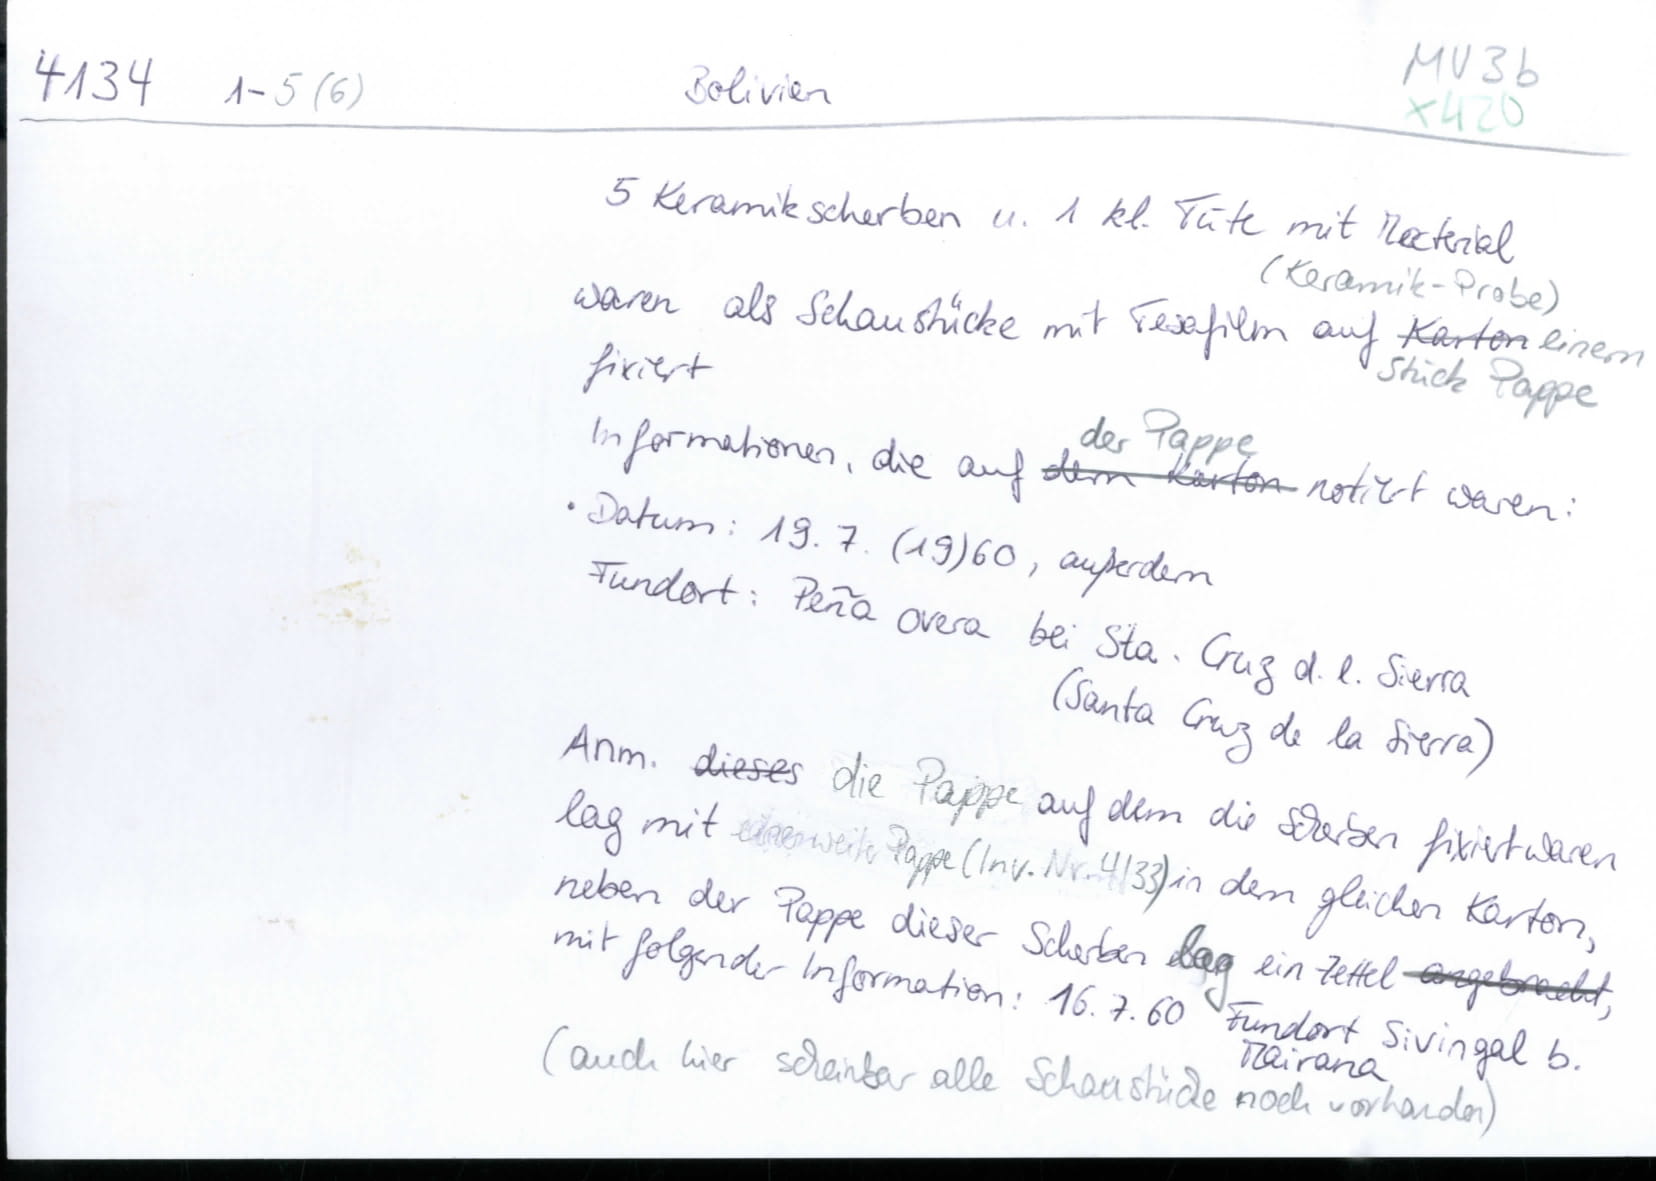 4134 1-5(6) Bolivien MV3b
x420
5 Keramikscherben u. 1 kl. Tüte mit Material
(Keramik-Probe)
waren als Schaustücke mit Tesafilm auf Karton einem
fixiert Stück Pappe
der Pappe
Informationen, die auf dem Karton notiert waren:
• Datum: 19. 7. (19)60, außerdem
Fundort: Peña overa bei Sta. Cruz d. l. Sierra
(Santa Cruz de la Sierra)
Anm. dieses die Pappe auf dem die Scherben fixiert waren
lag mit Pappe (Inv. Nr. 4133) in dem gleichen Karton,
neben der Pappe dieser Scherben lag ein Zettel angebracht,
mit folgender Information: 16. 7. 60 Fundort Sivingal b.
Mairana
(auch hier scheinbar alle Schaustücke noch vorhanden)